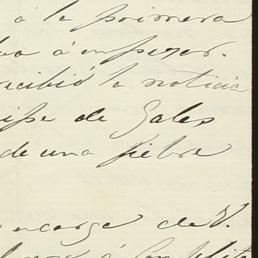 á la primera
á empezar.
recibió la noticia
cipe de Gales
de una fiebre
encargo de V.